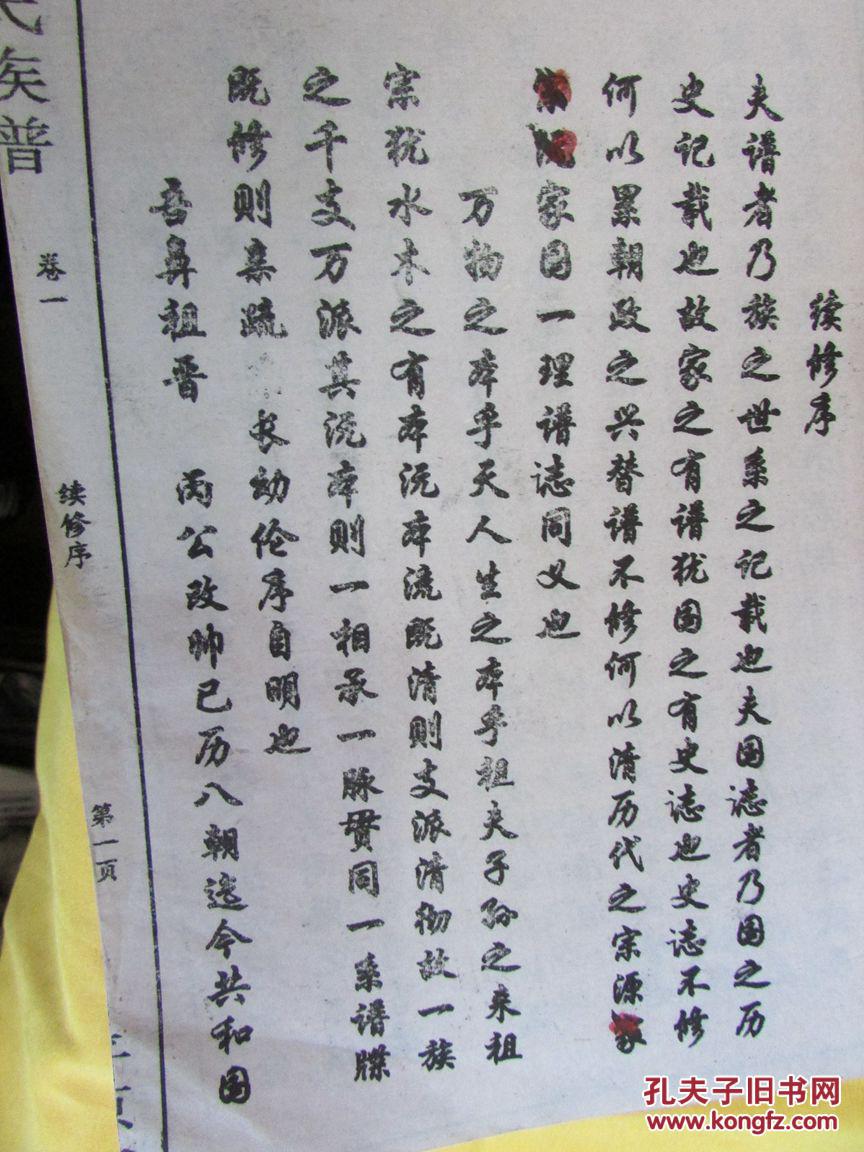 续修序
夫谱者乃族之世系之记载也夫国志者乃国之历
史记载也故家之有谱犹国之有史志也史志不修
何以累朝政之兴替谱不修何以清历代之宗源家
家国一理谱志同义也
万物之本乎天人生之本乎祖夫子孙之来祖
宗犹水木之有本沅本流既清则支派清彻故一族
之千支万派其沅本则一相承一脉贯同一系谱牒
既修则亲疏 长幼伦序自明也
吾鼻祖晋 丙公改帅已历八朝迄今共和国
氏族谱
卷一
续修序
第一页
孔夫子旧书网
www.kongfz.com